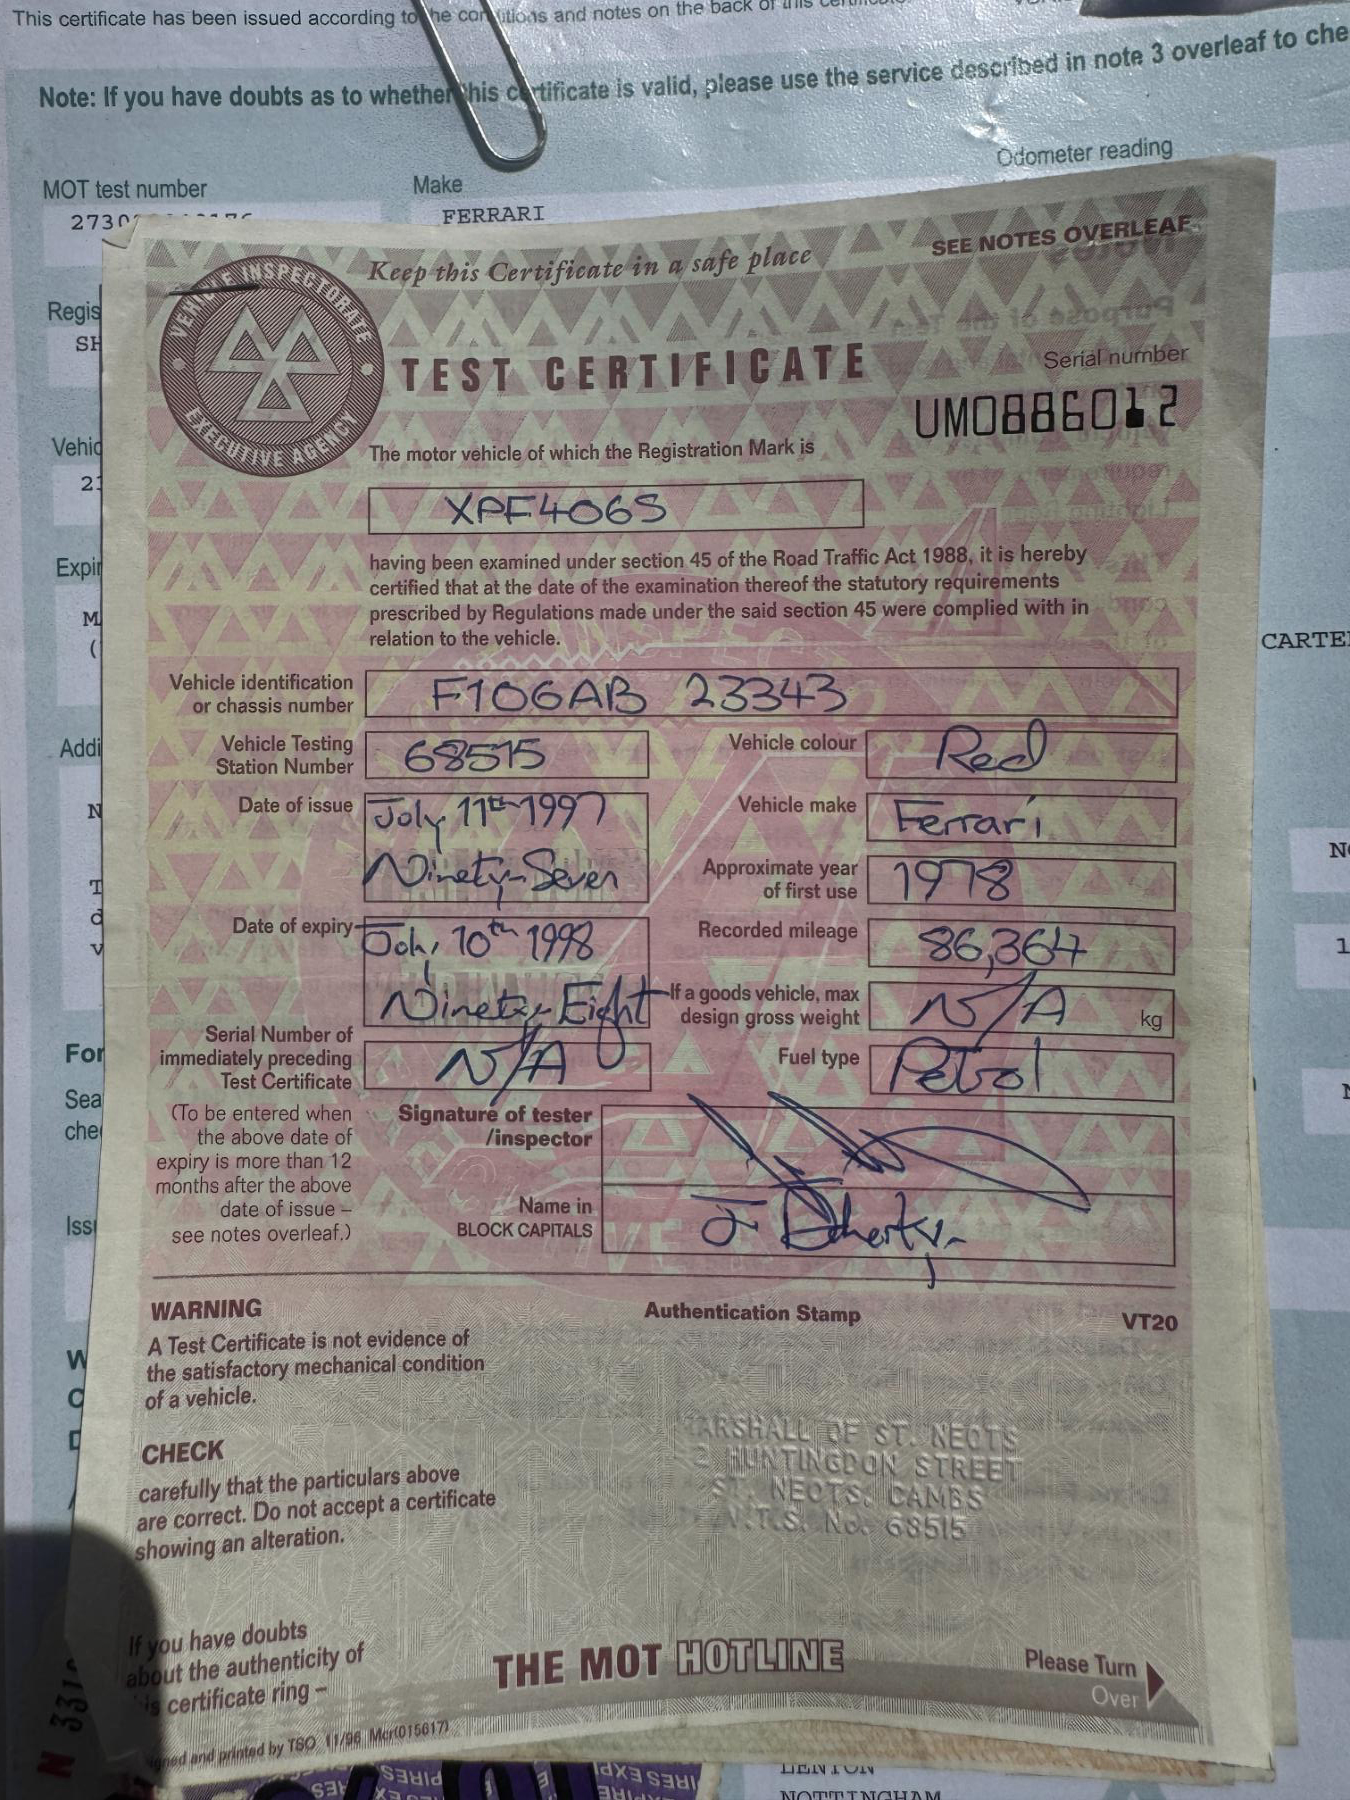 This certificate has been issued according to the conditions and notes on the back of this
Note: If you have doubts as to whether this certificate is valid, please use the service described in note 3 overleaf to che
Odometer reading
MOT test number
Make
FERRARI
Regis
SH
Vehic
21
Expir
M
(
CARTE
Addi
N
T
d
v
1
For
Sea
che
Issu
W
C
D
Keep this Certificate in a safe place
SEE NOTES OVERLEAF
VEHICLE INSPECTORATE
EXECUTIVE AGENCY
TEST CERTIFICATE
Serial number
UM0886012
The motor vehicle of which the Registration Mark is
XPF406S
having been examined under section 45 of the Road Traffic Act 1988, it is hereby
certified that at the date of the examination thereof the statutory requirements
prescribed by Regulations made under the said section 45 were complied with in
relation to the vehicle.
Vehicle identification
or chassis number
F106AB 23343
Vehicle Testing
Station Number
68515
Vehicle colour
Red
Date of issue
July 11th 1997
Ninety-Seven
Vehicle make
Ferrari
Approximate year
of first use
1978
Date of expiry
July 10th 1998
Ninety-Eight
Recorded mileage
86,364
If a goods vehicle, max
design gross weight
N/A
kg
Serial Number of
immediately preceding
Test Certificate
N/A
Fuel type
Petrol
(To be entered when
the above date of
expiry is more than 12
months after the above
date of issue –
see notes overleaf.)
Signature of tester
/inspector
Name in
BLOCK CAPITALS
J Doherty
WARNING
A Test Certificate is not evidence of
the satisfactory mechanical condition
of a vehicle.
Authentication Stamp
VT20
CHECK
carefully that the particulars above
are correct. Do not accept a certificate
showing an alteration.
MARSHALL OF ST. NEOTS
2 HUNTINGDON STREET
ST. NEOTS. CAMBS
V.T.S. No. 68515
If you have doubts
about the authenticity of
this certificate ring –
THE MOT HOTLINE
Please Turn
Over
signed and printed by TSO 11/96 Mcr(015617)
LENTON
NOTTINGHAM